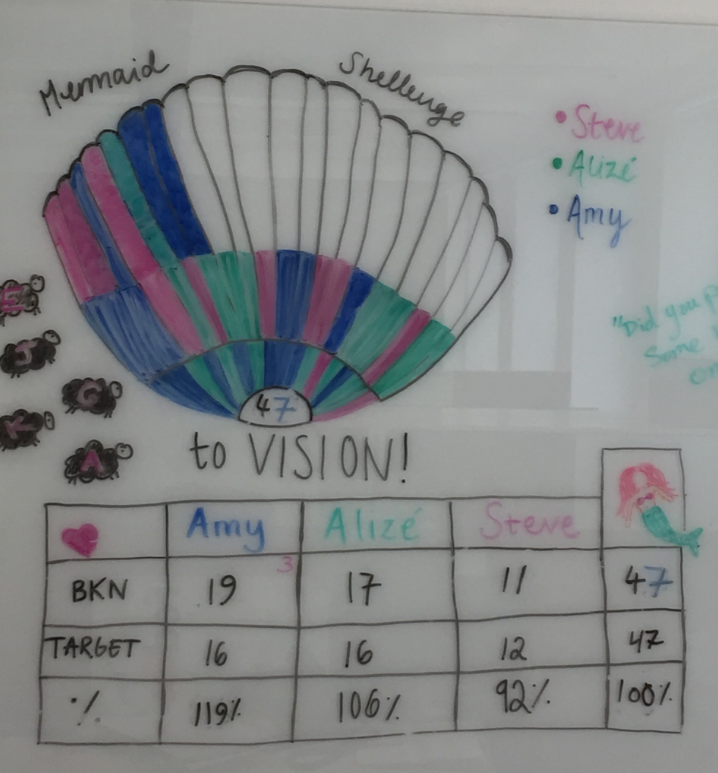 Mermaid Shellenge
• Steve
• Alizé
• Amy
"Did you
Some
E
J
G
K
A
47
to VISION!
Amy Alizé Steve
3
BKN 19 17 11 47
TARGET 16 16 12 47
% 119% 106% 92% 100%